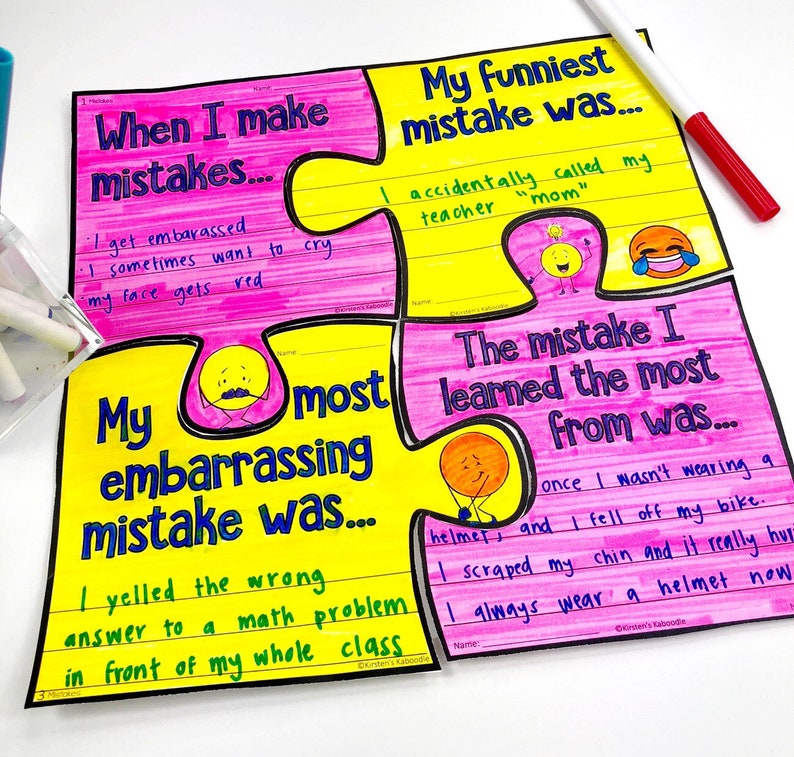 1 Mistakes
Name:
When I make
mistakes...
· I get embarassed
· I sometimes want to cry
· my face gets red
©Kirsten's Kaboodle
My funniest
mistake was...
I accidentally called my
teacher "mom"
Name:
©Kirsten's Kaboodle
Name:
My most
embarrassing
mistake was...
I yelled the wrong
answer to a math problem
in front of my whole class
©Kirsten's Kaboodle
3 Mistakes
The mistake I
learned the most
from was...
once I wasn't wearing a
helmet, and I fell off my bike.
I scraped my chin and it really
I always wear a helmet now
©Kirsten's Kaboodle
Name: